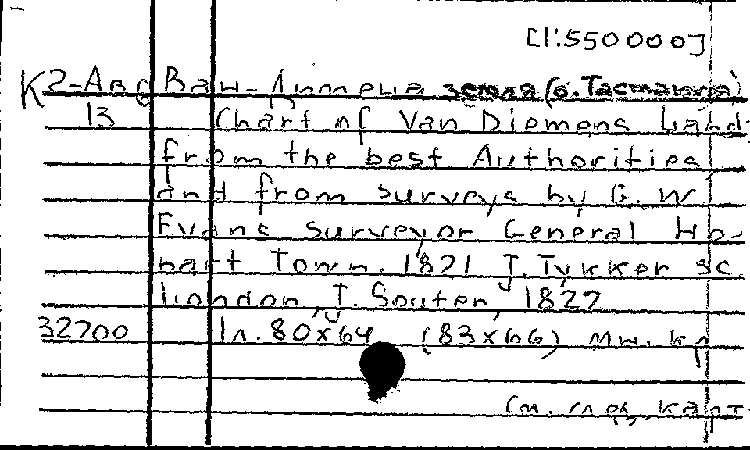 [1:550000]
K2-Авс Ван-Дименова земля (о. Тасмания)
13 Chart of Van Diemens Land
from the best Authorities
and from surveys by G. W.
Evans Surveyor General Ho-
bart Town. 1821 J. Tykker sc.
London, J. Souter, 1822
32700 1л. 80x64 (83x66) мн. кр